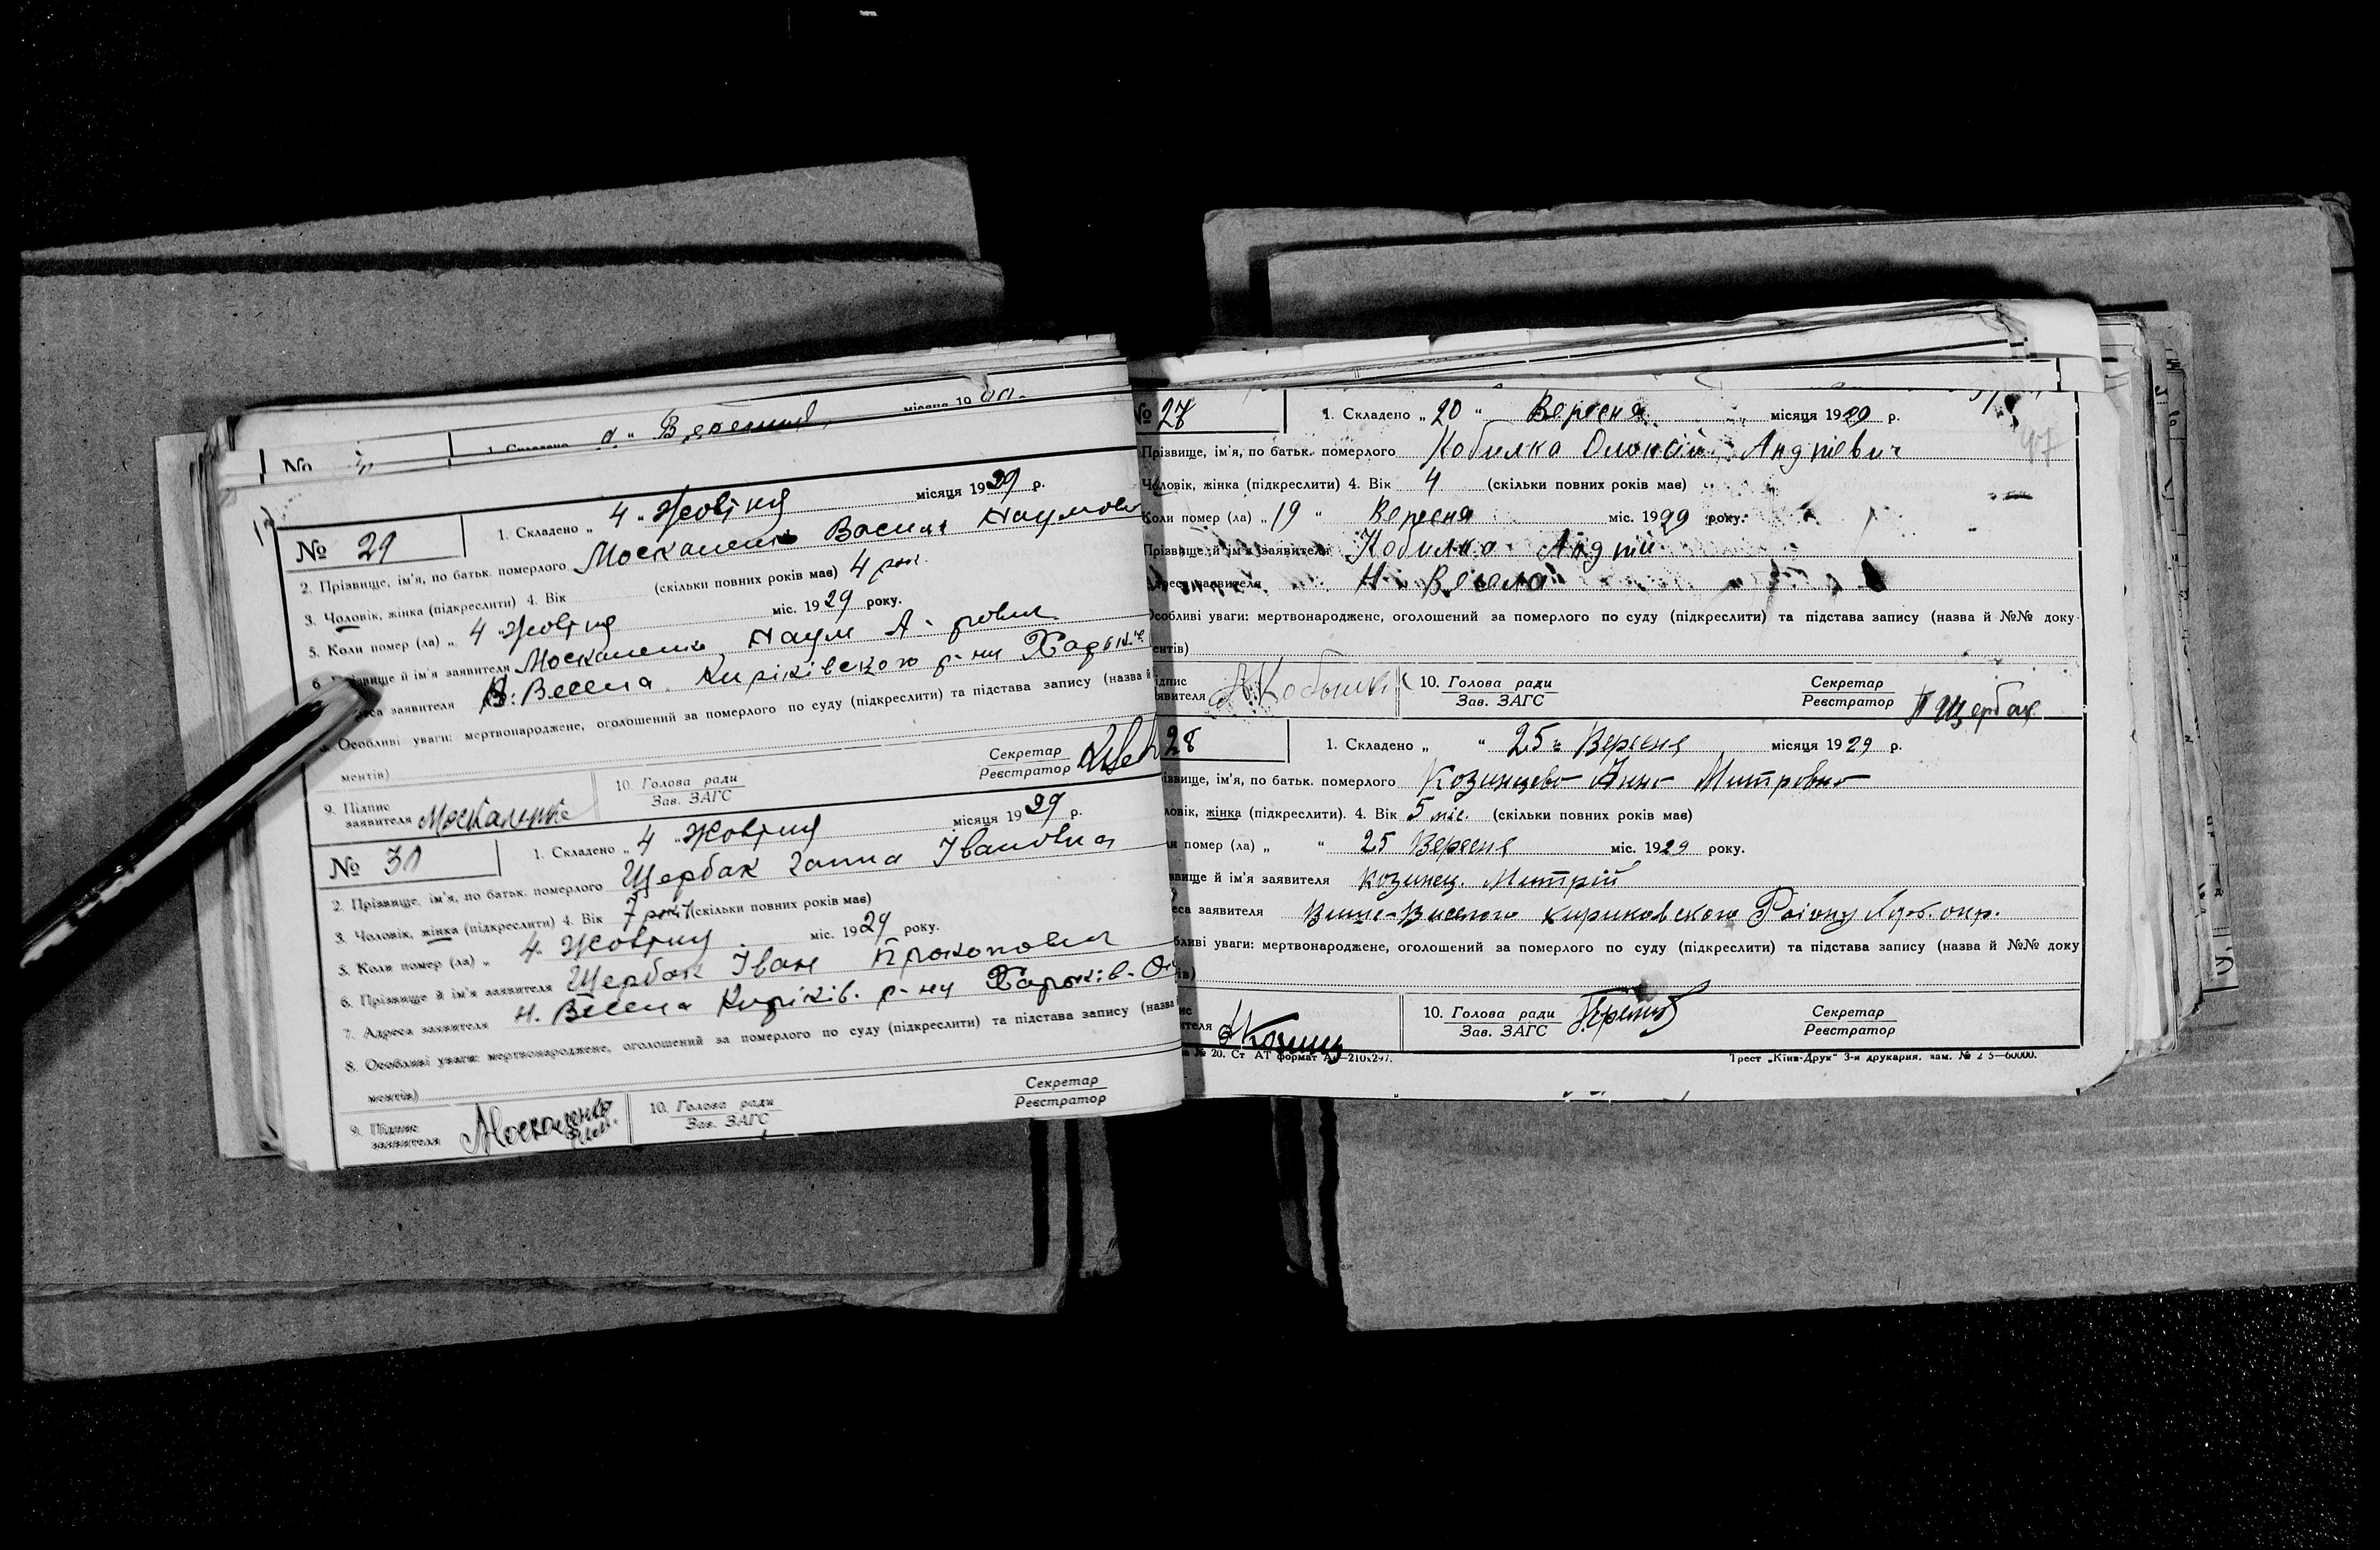 № 1. Складено „ 9 " Вересния місяця 19
№ 29 1. Складено „ 4 " Жовтня місяця 1929 р.
2. Прізвище, ім'я, по батьк. померлого Москаленко Василя Наумови
3. Чоловік, жінка (підкреслити) 4. Вік (скільки повних років має) 4 рок.
5. Коли помер (ла) „ 4 " Жовтня міс. 1929 року.
6. Прізвище й ім'я заявителя Москаленко Наум
заявителя В. Весела Киріківского р-ну
Особливі уваги: мертвонароджене, оголошений за померлого по суду (підкреслити) та підстава запису (назва й
ментів)
9. Підпис заявителя Москаленко 10. Голова ради Зав. ЗАГС Секретар Реєстратор
№ 30 1. Складено „ 4 " Жовтня місяця 1929 р.
2. Прізвище, ім'я, по батьк. померлого Щербак Ганна Івановна
3. Чоловік, жінка (підкреслити) 4. Вік 7 рокі (скільки повних років має)
5. Коли помер (ла) „ 4 " Жовтня міс. 1929 року.
6. Прізвище й ім'я заявителя Щербак Іван Прокопович
7. Адреса заявителя Н. Весела Киріків. р-ну Харьків.
8. Особливі уваги: мертвонароджене, оголошений за померлого по суду (підкреслити) та підстава запису (назва
ментів)
9. Підпис заявителя Москаленко 10. Голова ради Зав. ЗАГС Секретар Реєстратор
№ 27 1. Складено „ 20 " Вересня місяця 1929 р.
Прізвище, ім'я, по батьк. померлого Кобилка Олексій Андпіевич
Чоловік, жінка (підкреслити) 4. Вік 4 (скільки повних років має)
Коли помер (ла) „ 19 " Вересня міс. 1929 року.
Прізвище й ім'я заявителя Кобилка Андпій
Адреса заявителя Н. Весела
Особливі уваги: мертвонароджене, оголошений за померлого по суду (підкреслити) та підстава запису (назва й №№ доку
ентів)
ідпис явителя 10. Голова ради Зав. ЗАГС Секретар Реєстратор П Щербак
28 1. Складено „ " 25 " Вересня місяця 1929 р.
ізвище, ім'я, по батьк. померлого Козинцева Анна Митровна
ловік, жінка (підкреслити). 4. Вік 5 міс. (скільки повних років має)
помер (ла) „ " 25 Вересня міс. 1929 року.
звище й ім'я заявителя Козинец. Митрій
еса заявителя Више-Виселого Кириковского Раіону
бливі уваги: мертвонароджене, оголошений за померлого по суду (підкреслити) та підстава запису (назва й №№ доку
ів)
ителя 10. Голова ради Зав. ЗАГС Секретар Реєстратор
№ 20. Ст АТ формат А4—210х297. Трест „Київ-Друк" 3-я друкарня, зам. № 2 5—60000.